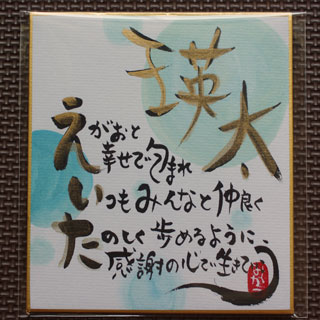 瑛太
えがおと
幸せで包まれ
いつもみんなと仲良く
たのしく歩めるように、
感謝の心で生きて